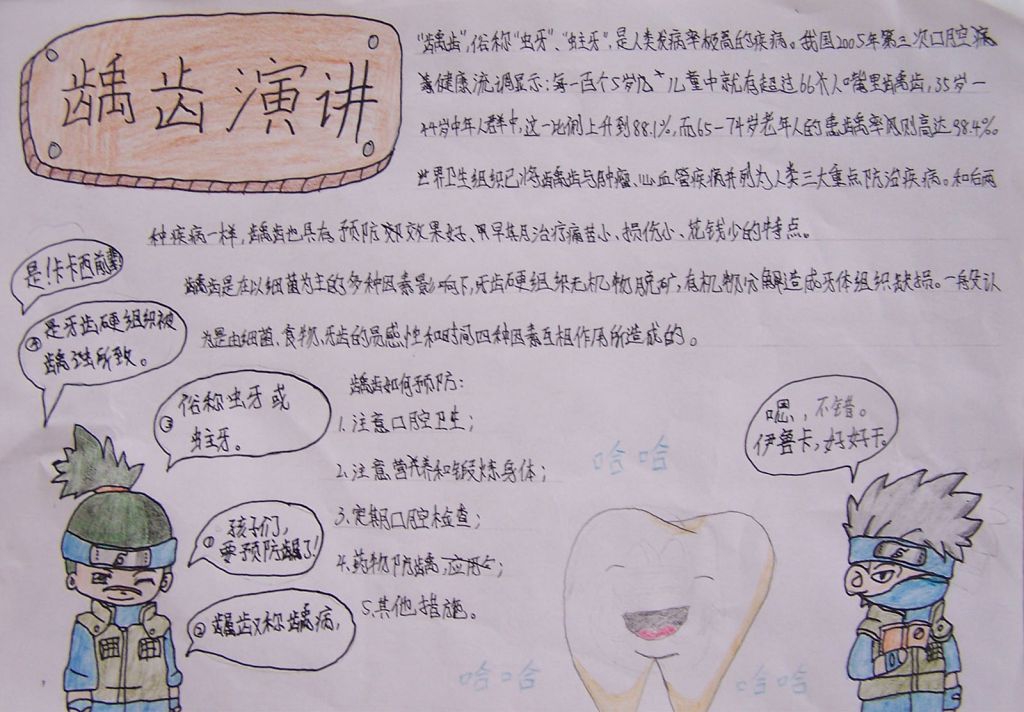 龋齿演讲
"龋齿",俗称"虫牙"、"蛀牙",是人类发病率极高的疾病。我国2005年第三次口腔病
健康流调显示:每一百个5岁儿童中就有超过66个人嘴里龋齿,35岁一
44岁中年人群中,这一比例上升到88.1%,而65-74岁老年人的患龋率则高达98.4%。
世界卫生组织已将龋齿与肿瘤、心血管疾病并列为人类三大重点防治疾病。和后两
种疾病一样,龋齿也具有预防效果好、早期治疗痛苦小、损伤小、花钱少的特点。
龋齿是在以细菌为主的多种因素影响下,牙齿硬组织无机物脱矿,有机物分解造成牙体组织缺损。一般认
为是由细菌、食物、牙齿的易感性和时间四种因素互相作用所造成的。
是!卡卡西前辈
④是牙齿硬组织被
龋蚀所致。
③俗称虫牙或
蛀牙。
①孩子们,
要预防龋了!
②龋齿又称龋病,
龋齿如何预防:
1.注意口腔卫生;
2.注意营养和锻炼身体;
3.定期口腔检查;
4.药物防龋,应用;
5.其他措施。
嗯,不错。
伊鲁卡,好好干。
哈哈
哈哈
哈哈